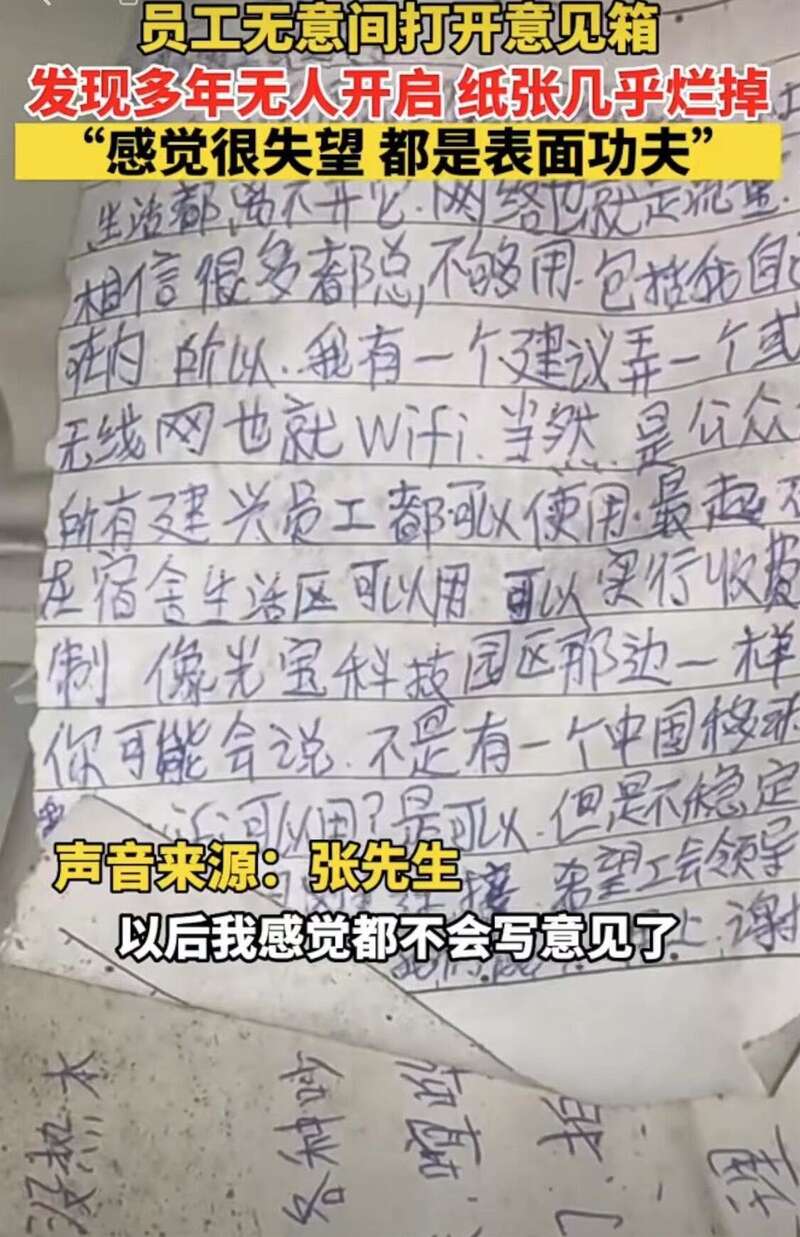 员工无意间打开意见箱
发现多年无人开启 纸张几乎烂掉
“感觉很失望 都是表面功夫”
生活都离不开它.网络也就是流量.
相信很多都总,不够用.包括我自
在内 所以.我有一个建议弄一个或
无线网也就Wifi.当然.是公众
所有建兴员工都可以使用.最起
在宿舍生活区可以用 可以实行收费
制 像光宝科技园区那边一样
你可能会说.不是有一个中国移动
可以用?是可以.但是不稳定
声音来源：张先生
接.希望工会领导
以后我感觉都不会写意见了
上.谢
没热水
各种吵